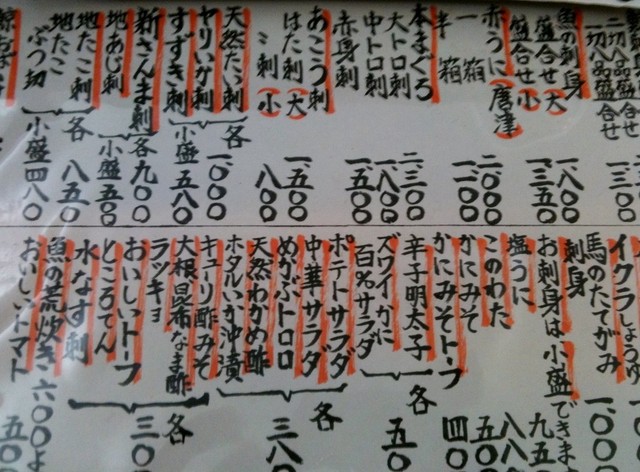 二切八品盛合せ
一切八品盛合せ 一三〇〇
魚の刺身
盛合せ 大 一八〇〇
盛合せ 小 一三五〇
赤うに(唐津)
一箱 二〇〇〇
半箱 一一〇〇
本まぐろ
大トロ刺 二三〇〇
中トロ刺 一八〇〇
赤身刺 一五〇〇
あこう刺
はた刺(大) 一五〇〇
〃刺(小) 八〇〇
天然たい刺
ヤリいか刺 各一〇〇〇
すずき刺 小盛五八〇
新さんま刺 各九〇〇
地あじ刺 小盛五〇〇
地たこ刺 各八五〇
地たこぶつ切 小盛四八〇
イクラしょうゆ
馬のたてがみ刺身 一〇〇
お刺身は小盛できま
塩うに 九五
このわた 八八
かにみそ 五〇
かにみそトーフ 四〇
辛子明太子
ズワイかに
百%サラダ 各五〇
ポテトサラダ
中華サラダ
めかぶトロロ
天然わかめ酢 各三八〇
ホタルいか沖漬
キューリ酢みそ
大根昆布なま酢
ラッキョ
おいしいトーフ 各三〇
ところてん
水なす刺
魚の荒炊き 六〇〇よ
おいしいトマト 五〇